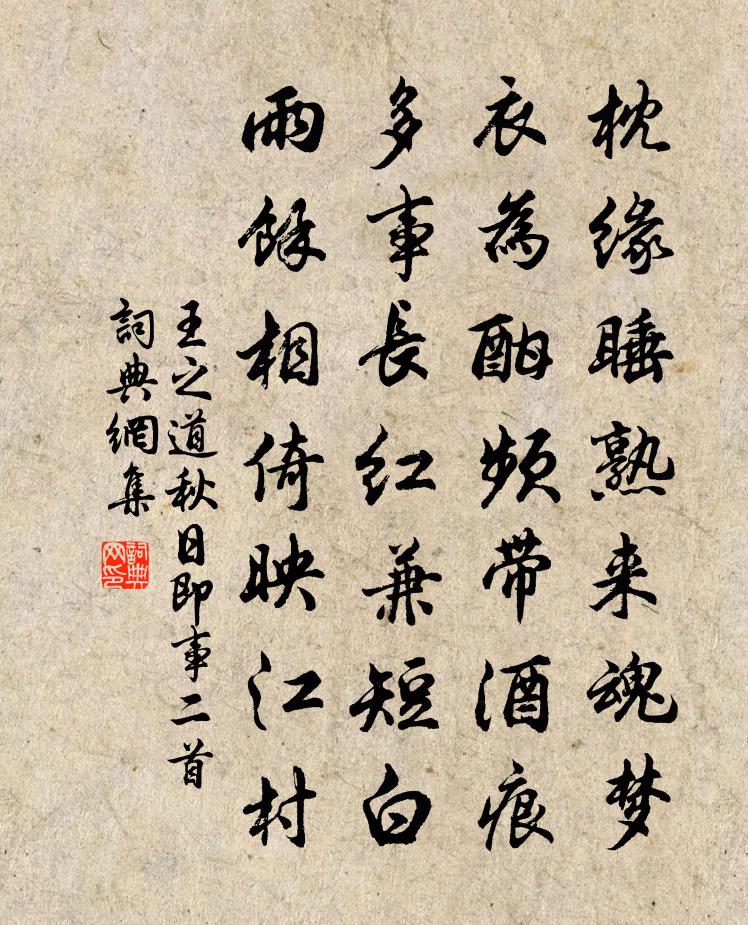 枕缘睡熟来魂梦
衣為酣頻带酒痕
多事長红兼短白
雨餘相倚映江村
王之道秋日即事二首
詞典網集
詞典网印